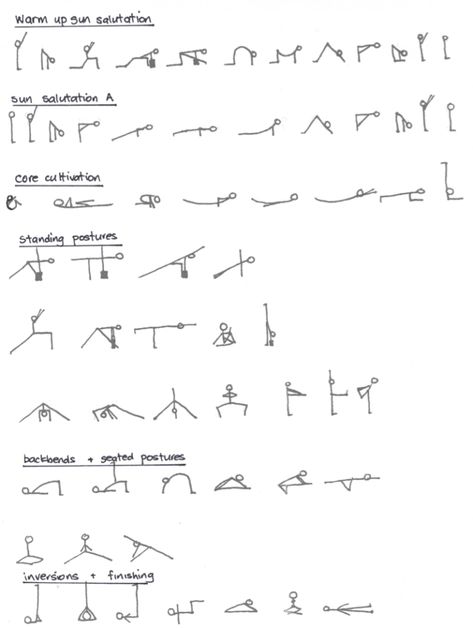 Warm up sun salutation
sun salutation A
core cultivation
standing postures
backbends + seated postures
inversions + finishing